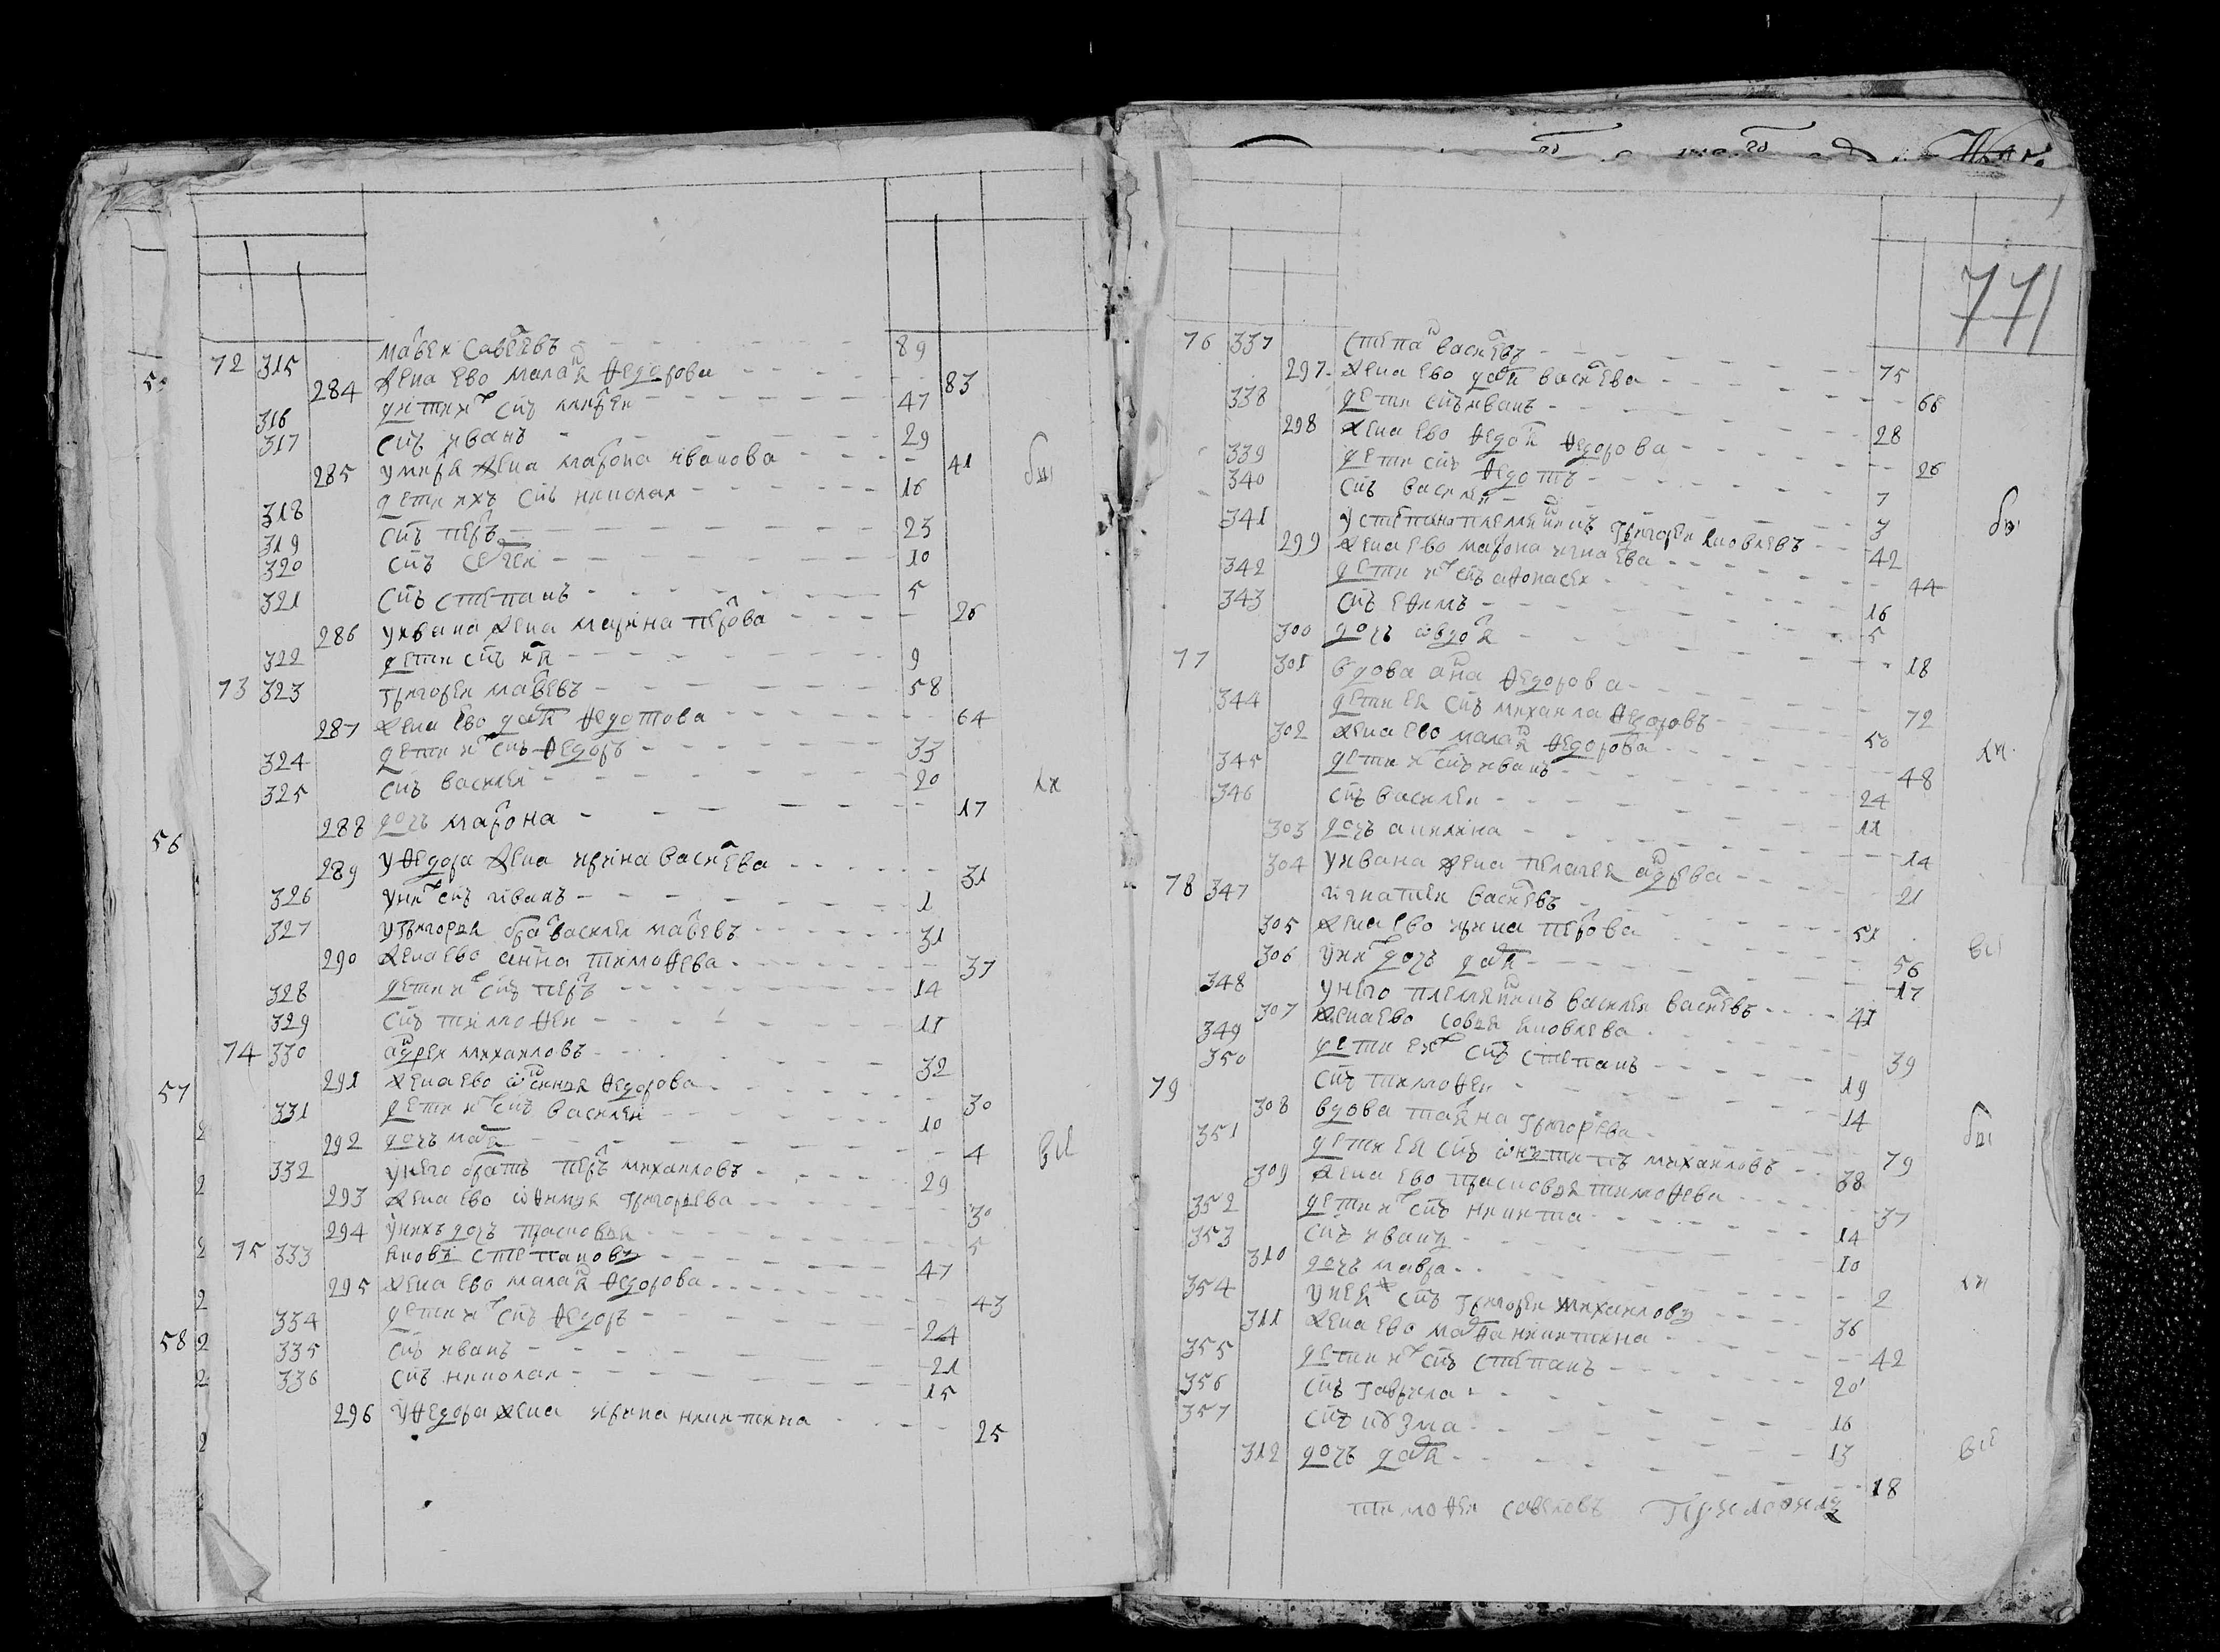 72 315 мавеи Савеевъ 89
284 жена ево маланя федорова 83
316 дети их снъ андреи 47
317 снъ иванъ 29
285 у андрея жена марфа иванова 41
318 дети ихъ снъ николаи 16
319 снъ петръ 23
320 снъ сергеи 10
321 снъ степанъ 5
286 у ивана жена марина петрова 26
322 дети снъ 9
73 323 григореи мавевъ 58
287 жена ево дарья федотова 64
324 дети их снъ федоръ 33
325 снъ василеи 20
56
288 дочь марфа 17
289 у федора жена ирина василева 31
326 у них снъ иванъ 1
327 у григорея брат василеи мавевъ 31
290 жена ево анна тимофева 37
328 дети их снъ петръ 14
329 снъ тимофеи 11
74 330 андреи михаиловъ 32
57
291 жена ево федорова 30
331 дети их снъ василеи 10
292 дочь 4
332 у него братъ петръ михаиловъ 29
293 жена ево офимия григорева 30
294 у нихъ дочь прасковея 5
75 333 яковъ степановъ 47
295 жена ево маланя федорова 43
334 дети их снъ федоръ 24
58
335 снъ иванъ 21
336 снъ николаи 15
296 у федора жена ирина никитина 25
771
76 337 степанъ василевъ 75
297 жена ево дарья василева 66
338 дети снъ иванъ 28
298 жена ево федося федорова 26
339 дети снъ федотъ 7
340 снъ василеи 3
341 у степана племянникъ григореи яковлевъ 42
299 жена ево марфа игнатева 44
342 дети их снъ афонасеи 16
343 снъ ефимъ 5
300 дочь овдотя 18
77 301 вдова анна федорова 72
344 дети ея снъ михаила федоровъ 50
302 жена ево маланя федорова 48
345 дети их снъ иванъ 24
346 снъ василеи 11
303 дочь акилина 14
304 у ивана жена пелагея андрева 21
78 347 игнатеи василевъ 51
305 жена ево ирина петрова 56
306 у них дочь дарья 17
348 у него племянникъ василеи василевъ 41
307 жена ево софя яковлева 39
349 дети их снъ степанъ 19
350 снъ тимофеи 14
79 308 вдова татяна григорева 79
351 дети ея снъ михаиловъ 38
309 жена ево прасковя тимофева 37
352 дети их снъ никита 14
353 снъ иванъ 10
310 дочь мавра 2
354 у нея ж снъ григореи михаиловъ 36
311 жена ево марфа никитина 42
355 дети их снъ степанъ 20
356 снъ гаврила 16
357 снъ кузма 13
312 дочь дарья 18
тимофеи савеловъ